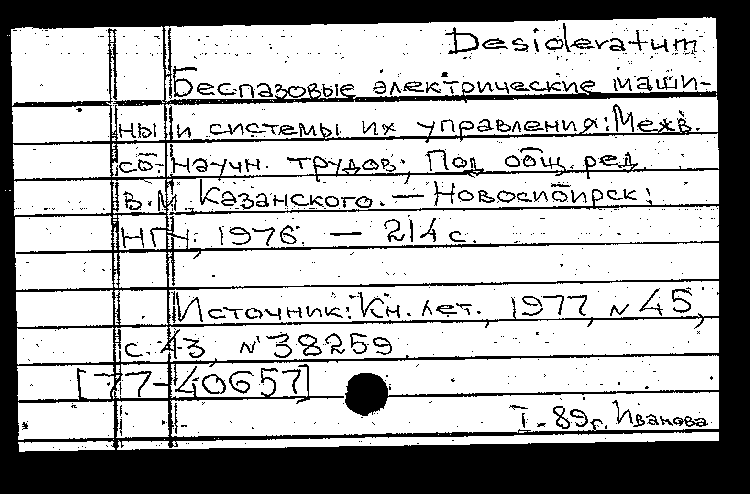 Desideratum
Беспазовые электрические маши-
ны и системы их управления: Межв.
сб. научн. трудов; Под общ. ред.
В.М. Казанского. — Новосибирск:
НГУ, 1976. — 214 с.
Источник: Кн. лет., 1977, № 45,
с. 43, № 38259.
[77-40657]
I - 89г. Иванова